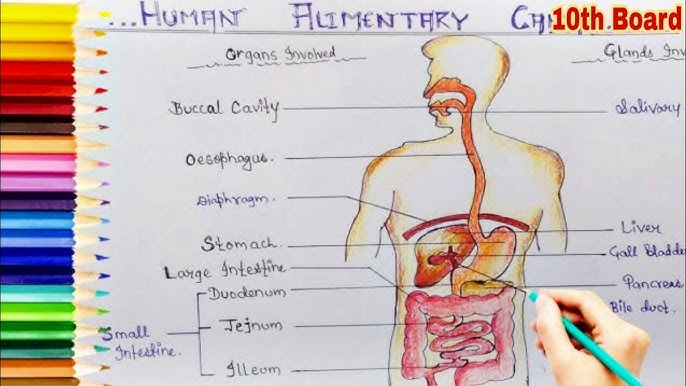 ...HUMAN ALIMENTARY CA
10th Board
Organs Involved
Glands Inv
Buccal Cavity
Salivary
Oesophagus.
Diaphragm.
Liver
Stomach.
Gall bladde
Large Intestine
Pancreas
Duodenum
Bile duct.
Small
Intestine.
Jejnum
Illeum